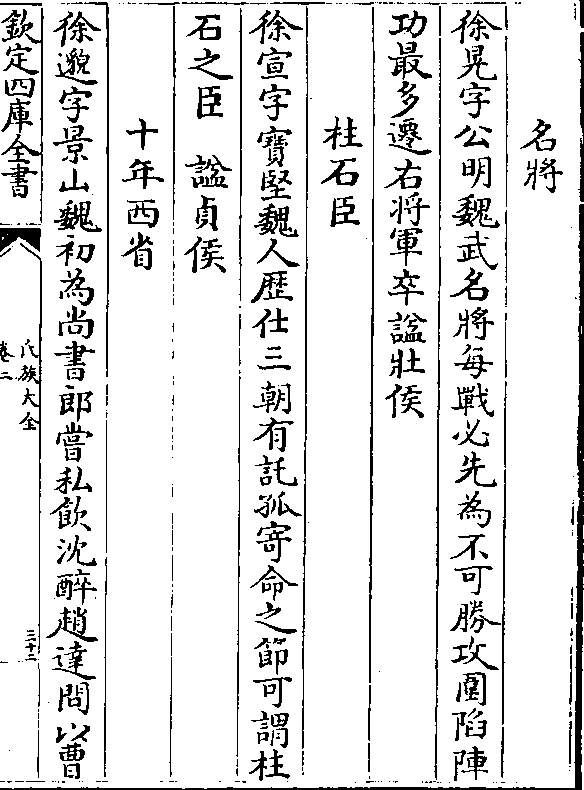 名將
徐晃字公明魏武名將每戰必先為不可勝攻圍陷陣
功最多遷右將軍卒諡壯侯
柱石臣
徐宣字寶堅魏人歴仕三朝有託孤寄命之節可謂柱
石之臣　諡貞侯
十年西省
徐邈字景山魏初為尚書郎嘗私飲沈醉趙達問以曹
欽定四庫全書
氏族大全
卷二
三十二